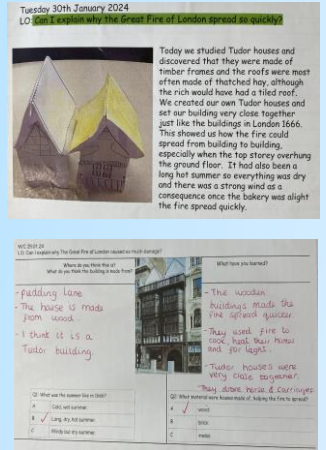 Tuesday 30th January 2024
LO: Can I explain why the Great Fire of London spread so quickly?
Today we studied Tudor houses and
discovered that they were made of
timber frames and the roofs were most
often made of thatched hay, although
the rich would have had a tiled roof.
We created our own Tudor houses and
set our building very close together
just like the buildings in London 1666.
This showed us how the fire could
spread from building to building,
especially when the top storey overhung
the ground floor. It had also been a
long hot summer so everything was dry
and there was a strong wind as a
consequence once the bakery was alight
the fire spread quickly.
LO: Can I explain why The Great Fire of London caused so much damage?
Where do you think this is?
What do you think the building is made from?
- Pudding Lane
- The house is made
from wood.
- I think it is a
Tudor building.
What have you learned?
- The wooden
buildings made the
fire spread quicker.
- They used fire to
cook, heat their homes
and for light.
- Tudor houses were
very close together.
- They drove horse & carriages
Q1: What was the summer like in 1666?
A Cold, wet summer.
B Long, dry, hot summer.
C Windy but dry summer.
Q2: What material were houses made of, helping the fire to spread?
A wood
B brick
C metal